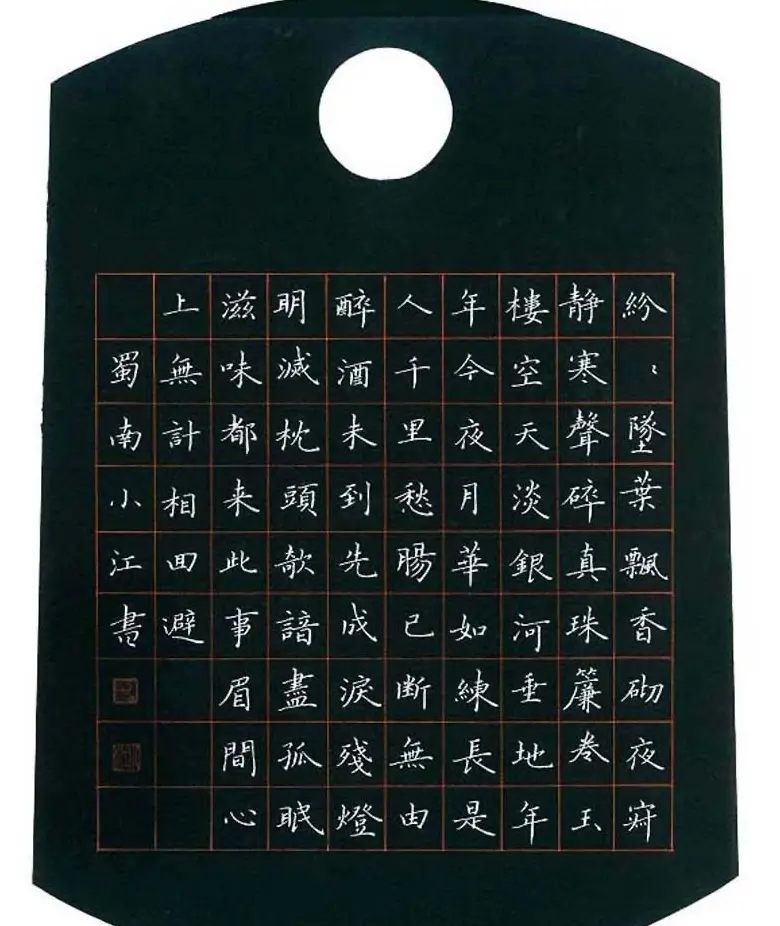 紛〻墜葉飄香砌夜寂
静寒聲碎真珠簾卷玉
樓空天淡銀河垂地年
年今夜月華如練長是
人千里愁腸已断無由
醉酒未到先成淚殘燈
明滅枕頭欹諳盡孤眠
滋味都来此事眉間心
上無計相回避
蜀南小江書